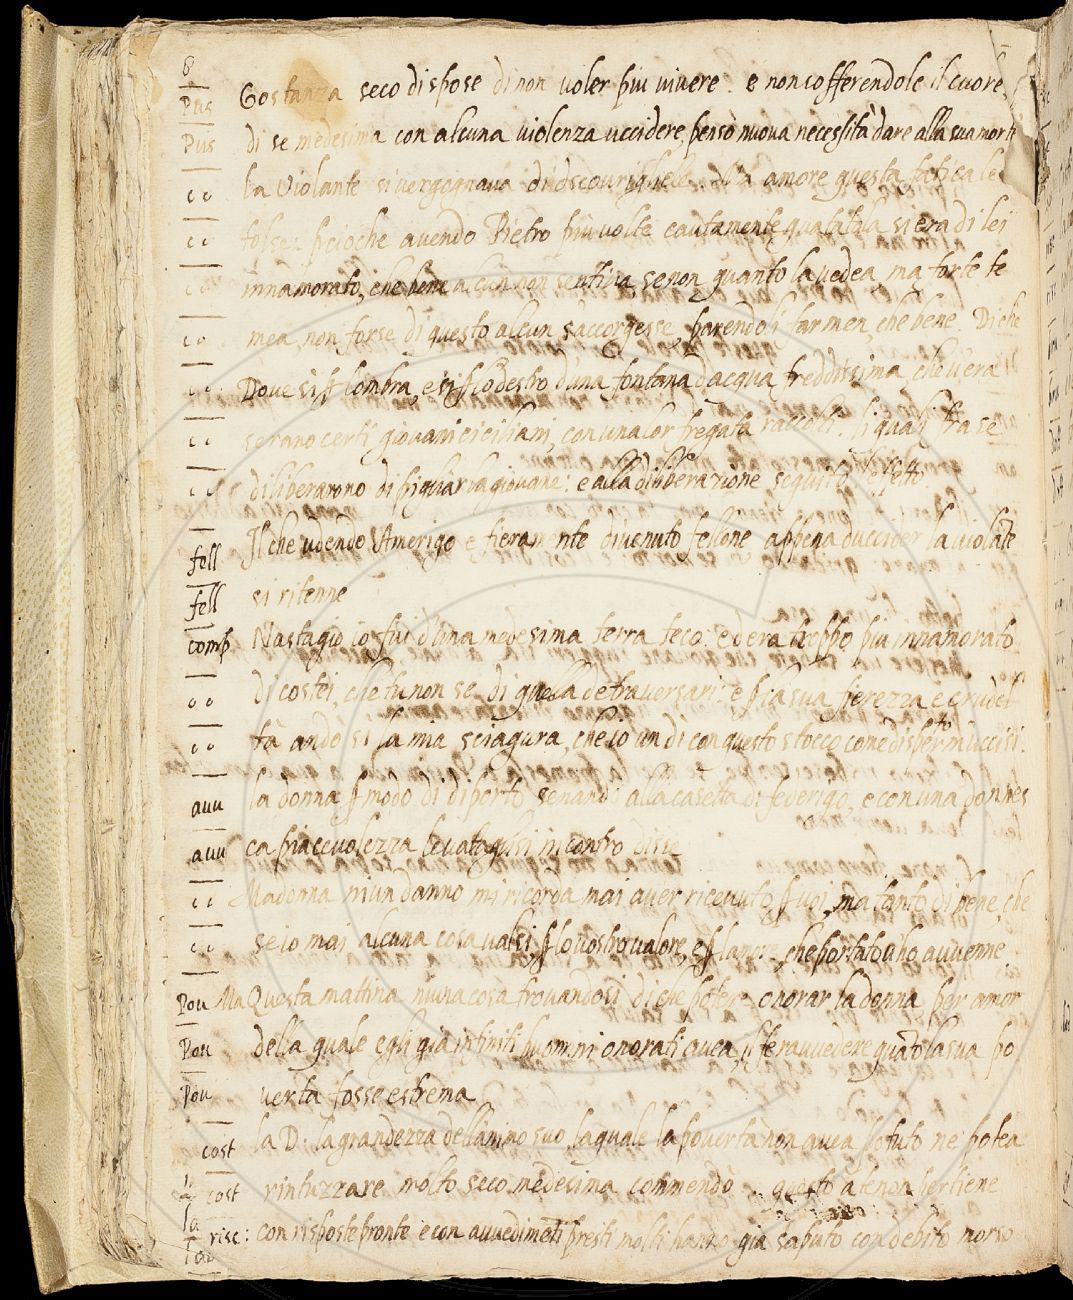 8
Pus Gostanza seco dispose di non voler piu vivere. e non sofferendole il cuore
Pus di se medesima con alcuna violenza uccidere, penso nuova necessità dare alla sua morte
cc la Violante si vergognava di discourirglele. Ma amore questa fatica le
cc tolse. percioche avendo Pietro piu volte cautamente guatatola si era di lei
cc innamorato, che bene alcun non sentiva, se non quanto la vedea, ma forte te
cc mea, non forse di questo alcun saccorgesse, parendoli far men, che bene. Di che
cc Dove si p lombra, e si p lo destro d'una fontana d'acqua freddissima, che v'era
cc serano certi giovani ciciliani, con una lor fregata raccolti. li quali fra se
cc diliberarono di pigliar la giovane: e alla diliberazione seguitò l'effetto
fell Il che udendo Amerigo e fieramente divenuto fellone appena d'uccider la violāte
fell si ritenne
comp Nastagio io fui d'una medesima terra teco: ed era troppo piu innamorato
cc di costei, che tu non se di quella de traversari: e p la sua fierezza e crudel
cc tà andò sì la mia sciagura, che io un di con questo stocco come disperto m'uccisi.
avv la donna p modo di diporto senandò alla casetta di federigo, e con una donnes
avv ca piacevolezza levataglisi incontro disse
cc Madonna niun danno mi ricorda mai aver ricevuto p voi, ma tanto di bene, che
cc se io mai alcuna cosa valsi, p lo vostro valore, e p lamore, che portato v'ho avvenne
Pov Ma Questa mattina niuna cosa trovandosi di che potere onorar la donna per amor
Pov della quale egli già infiniti huomini onorati avea, il fe ravvedere quāto la sua po
Pov vertà fosse estrema
cost la D. la grandezza dellanimo suo laquale la povertà non avea potuto ne potea
cost rintuzzare molto seco medesima commendò .. questo a te non pertiene
risc: con risposte pronte e con avvedimēti presti molti hanno già saputo con debito morso